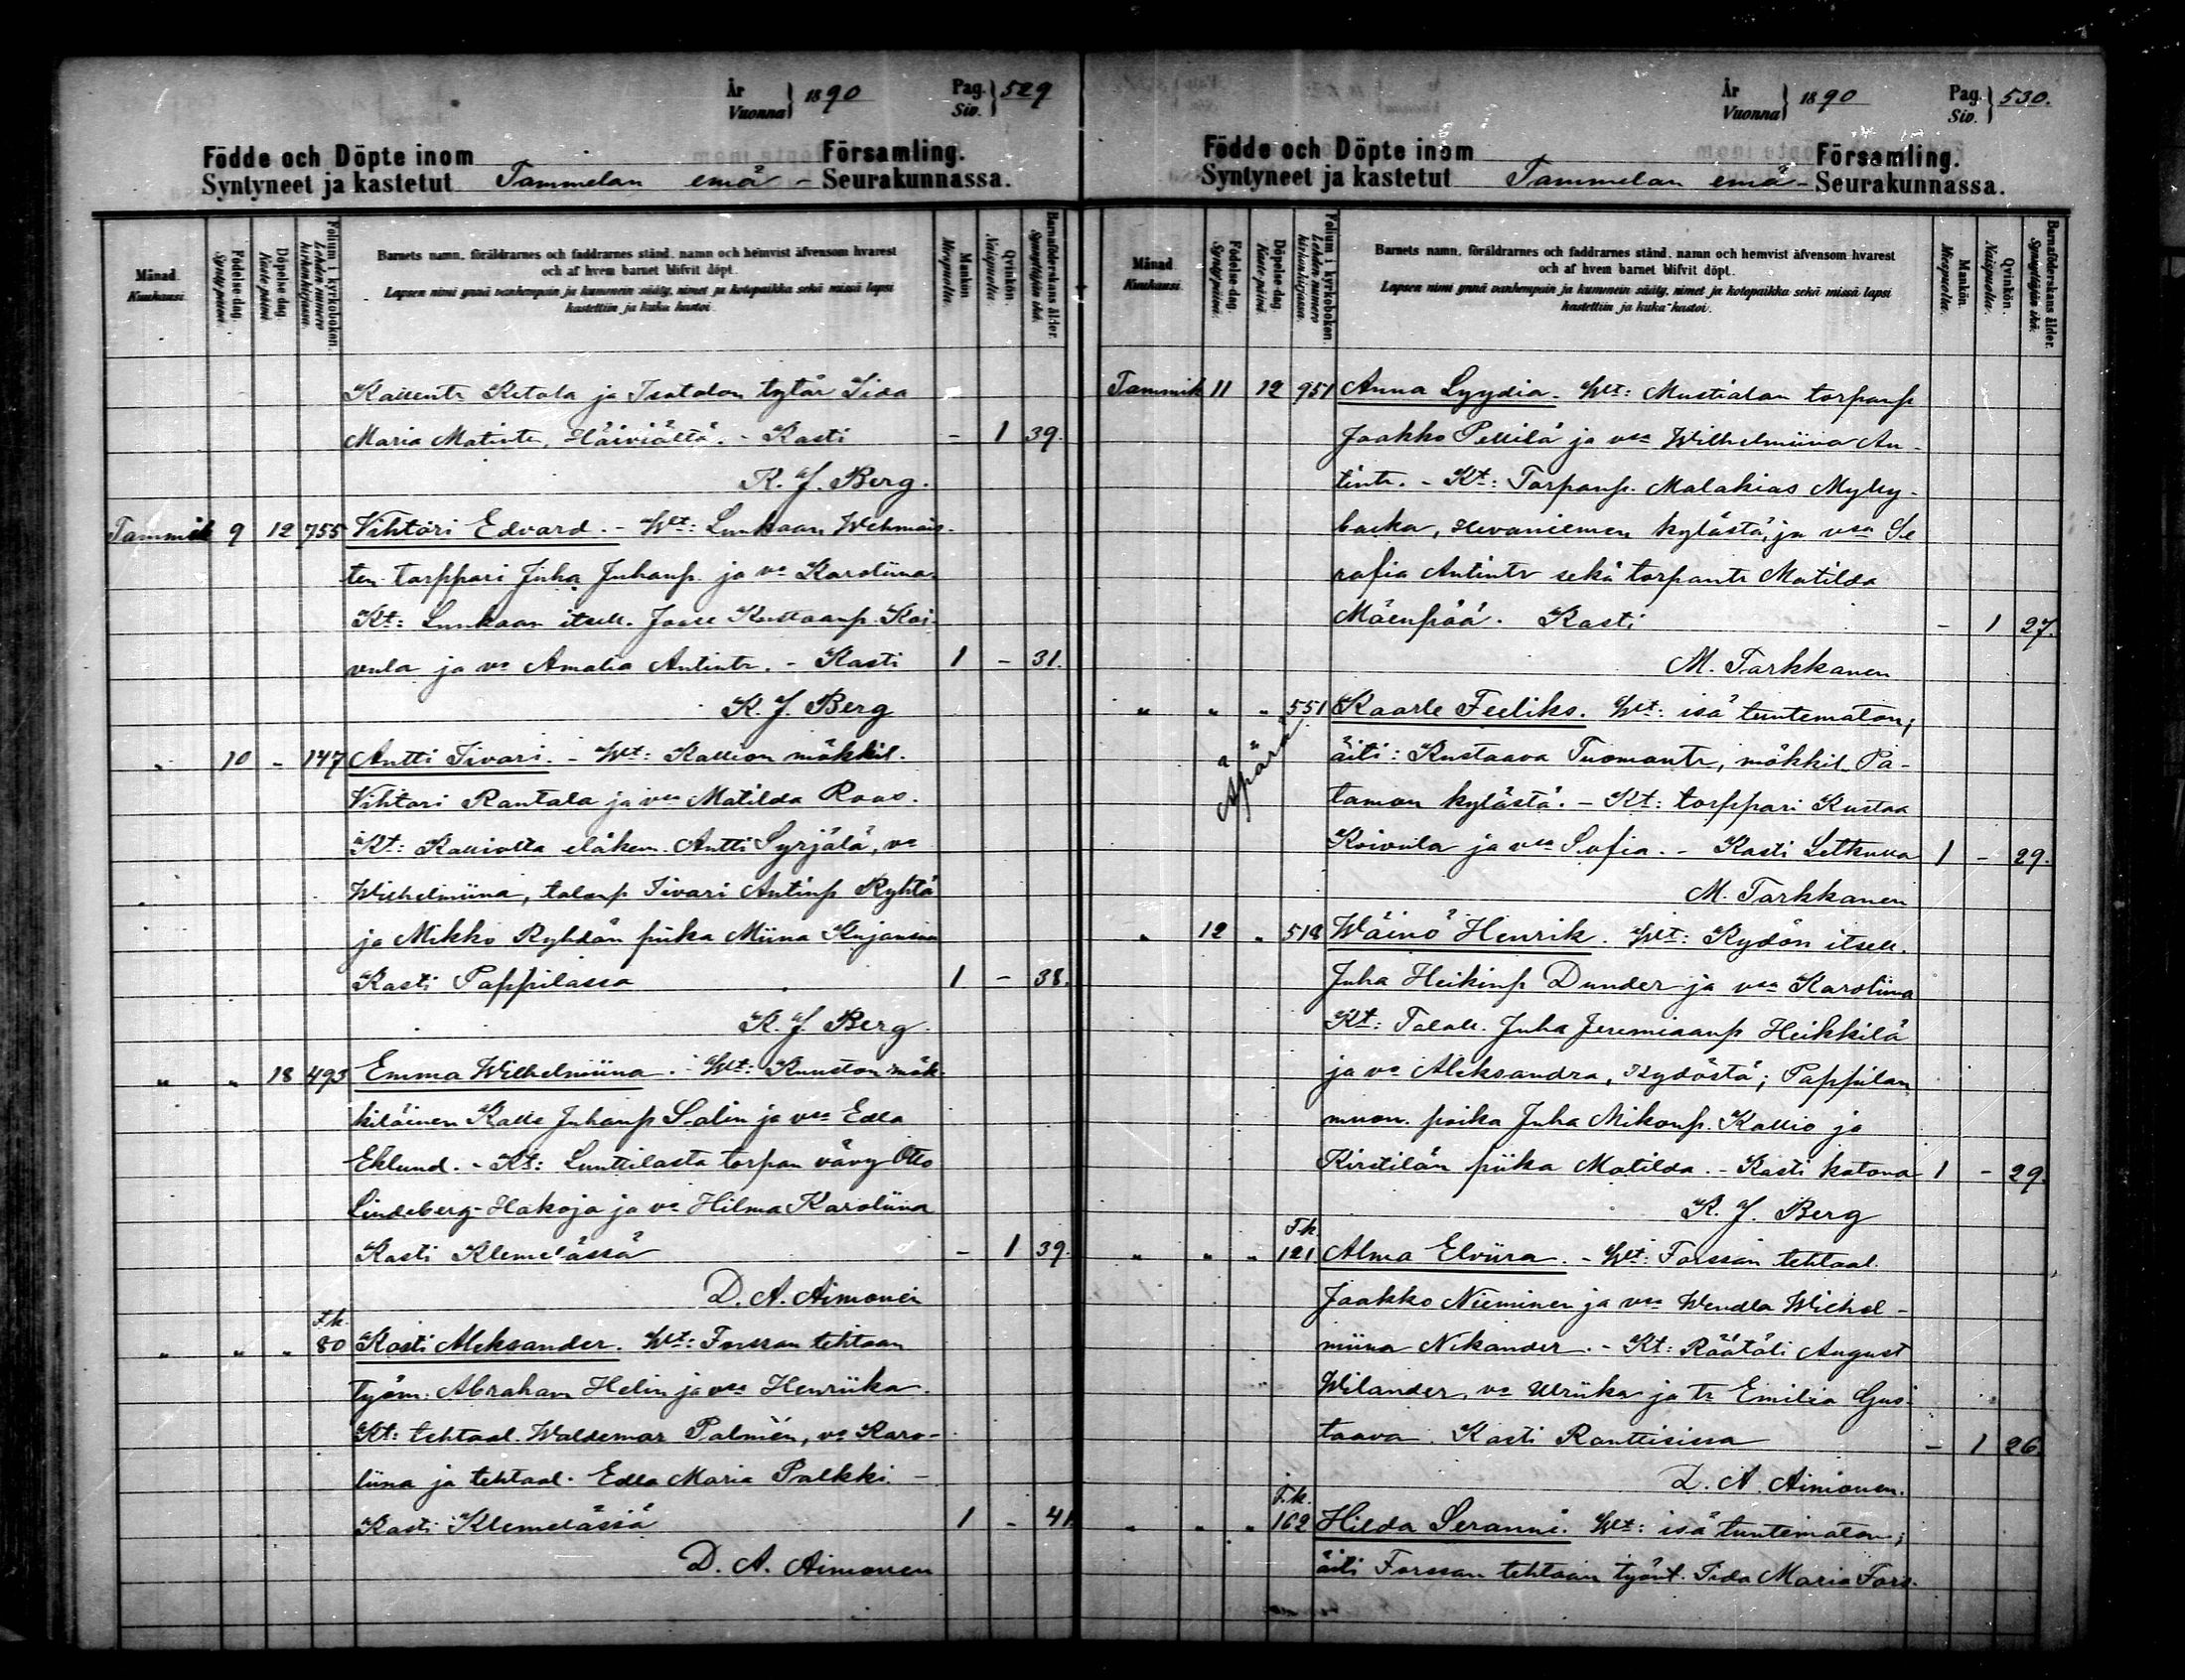 År
Vuonna } 1890 Pag. Siv. } 529
Födde och Döpte inom Församling.
Syntyneet ja kastetut Tammelan emä- Seurakunnassa.
Månad. Kuukausi. Födelse-dag. Synty-päivä. Döpelse-dag. Kaste-päivä. Folium i kyrkoboken. Lehden numero kirkonkirjassa. Barnets namn, föräldrarnes och faddrarnes stånd, namn och hemvist äfvensom hvarest Mankön. Miespuolia. Qvinkön. Naispuolia. Barnaföderskans ålder. Synnyttäjän ikä.
och af hvem barnet blifvit döpt.
Lapsen nimi ynnä vanhempain ja kummein sääty, nimet ja kotopaikka sekä missä lapsi
kastettiin ja kuka kastoi.
Kallentr Ketola ja Isotalon tytär Iida
Maria Matintr, Häiviältä. - Kasti - 1 39.
K. J. Berg.
Tammik 9 12 755 Vihtori Edvard. - Wt: Lunkaan Wehmais-
ten torppari Juha Juhanp. ja vo Karoliina.
Kt: Lunkaan itsell. Joose Kustaanp. Koi-
vula ja vo Amalia Antintr. - Kasti 1 - 31.
K. J. Berg
" 10 " 147 Antti Iivari. - Wt: Kallion mökkil.
Vihtori Rantala ja vsa Matilda Roos.
Kt: Kalliolta eläkem. Antti Syrjälä, vo
Wilhelmiina, talonp Iivari Antinp Ryhtä
ja Mikko Ryhdän piika Miina Kujansuu
Kasti Pappilassa 1 - 38.
K. J. Berg.
" " 18 493 Emma Wilhelmiina. - Wt: Kuuston mök-
kiläinen Kalle Juhanp Salin ja vsa Edla
Eklund. - Kt: Lunttilasta torpan vävy Otto
Lindeberg-Hakoja ja vo Hilma Karoliina
Kasti Klemelässä - 1 39.
D. A. Aimonen
F.k.
" " " 80 Kosti Aleksander. Wt: Forssan tehtaan
työm. Abraham Helin ja vsa Henriika.
Kt: tehtaal. Waldemar Palmén, vo Karo-
liina ja tehtaal. Edla Maria Palkki. -
Kasti Klemelässä 1 - 41
D. A. Aimonen
År
Vuonna } 1890 Pag. Siv. } 530.
Födde och Döpte inom Församling.
Syntyneet ja kastetut Tammelan emä- Seurakunnassa.
Månad. Kuukausi. Födelse-dag. Synty-päivä. Döpelse-dag. Kaste-päivä. Folium i kyrkoboken. Lehden numero kirkonkirjassa. Barnets namn, föräldrarnes och faddrarnes stånd, namn och hemvist äfvensom hvarest Mankön. Miespuolia. Qvinkön. Naispuolia. Barnaföderskans ålder. Synnyttäjän ikä.
och af hvem barnet blifvit döpt.
Lapsen nimi ynnä vanhempain ja kummein sääty, nimet ja kotopaikka sekä missä lapsi
kastettiin ja kuka kastoi.
Tammik 11 12 951 Anna Lyydia. Wt: Mustialan torpanp
Jaakko Pellilä ja vsa Wilhelmiina An-
tintr. - Kt: Torpanp. Malakias Mylly-
backa, Hevaniemen kylästä, ja vsa Se
rafia Antintr sekä torpantr Matilda
Mäenpää. Kasti - 1 27.
M. Tarkkanen
" " " 551 Kaarle Feeliks. Wt: isä tuntematon;
Äpärä äiti: Kustaava Tuomantr, mökkil. Pa-
tamon kylästä. - Kt: torppari Kustaa
Koivula ja vsa Sofia. - Kasti Letkulla 1 - 29.
M. Tarkkanen
" 12 " 518 Wäinö Henrik. Wt: Kydön itsell.
Juha Heikinp Dunder ja vsa Karoliina
Kt: Talall. Juha Jeremiaanp Heikkilä
ja vo Aleksandra, Kydöstä; Pappilan
muon. poika Juha Mikonp. Kallio ja
Kirstilän piika Matilda. - Kasti kotona 1 - 29.
K. J. Berg
F.k.
" " " 121 Alma Elviira. - Wt: Forssan tehtaal.
Jaakko Nieminen ja vsa Wendla Wilhel-
miina Nikander. - Kt: Räätäli August
Wilander, vo Ulriika ja tr Emilia Gus-
taava. Kasti Ranttisissa - 1 26.
D. A. Aimonen.
F.k.
" " " 162 Hilda Seranni. Wt: isä tuntematon;
äiti Forssan tehtaan työnt. Iida Maria Fors-